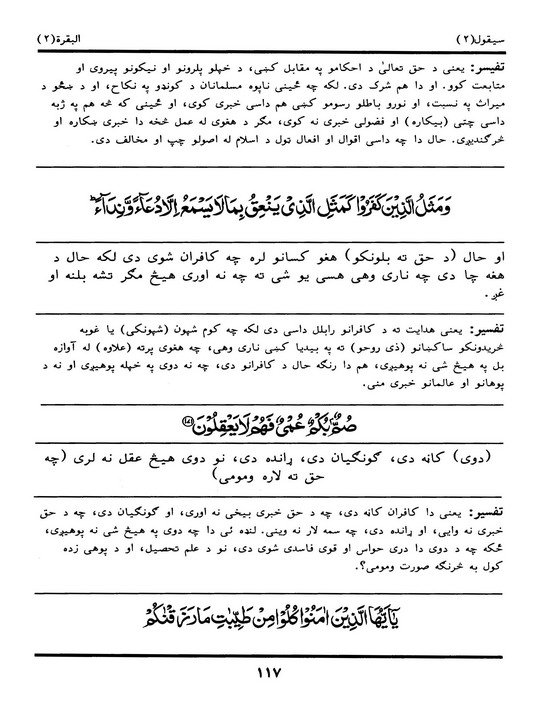 سيقول(٢)
البقرة(٢)
تفسير: يعنی د حق تعالیٰ د احکامو په مقابل کښی، د خپلو پلرونو او نيکونو پيروی او
متابعت کوو. او دا هم شرک دی. لکه چه ځينی ناپوه مسلمانان د کونډو په نکاح، او د ښځو د
ميراث په نسبت، او نورو باطلو رسومو کښی هم داسی خبری کوی، او ځينی که څه هم په ژبه
داسی چتی (بيکاره) او فضولی خبری نه کوی، مګر د هغوی له عمل څخه دا خبری ښکاره او
څرګنديږی. حال دا چه داسی اقوال او افعال ټول د اسلام له اصولو چپ او مخالف دی.
وَمَثَلُ الَّذِيْنَ كَفَرُوْا كَمَثَلِ الَّذِيْ يَنْعِقُ بِمَا لَا يَسْمَعُ اِلَّا دُعَآءً وَّنِدَآءً ؕ
او حال (د حق ته بلونکو) هغو کسانو لره چه کافران شوی دی لکه حال د
هغه چا دی چه ناری وهی هسی يو شی ته چه نه اوری هيڅ مګر تشه بلنه او
غږ.
تفسير: يعنی هدايت ته د کافرانو رابلل داسی دی لکه چه کوم شپون (شپونکی) يا غوبه
څريدونکو ساکښانو (ذی روحو) ته په بيديا کښی ناری وهی، چه هغوی پرته (علاوه) له آوازه
بل په هيڅ شی نه پوهيږی، هم دا رنګه حال د کافرانو دی، چه نه دوی په خپله پوهيږی او نه د
پوهانو او عالمانو خبری منی.
صُمٌّۢ بُكْمٌ عُمْيٌ فَهُمْ لَا يَعْقِلُوْنَ ﴿۱۷۱﴾
(دوی) کاڼه دی، ګونګيان دی، ړانده دی، نو دوی هيڅ عقل نه لری (چه
حق ته لاره ومومی)
تفسير: يعنی دا کافران کاڼه دی، چه د حق خبری بيخی نه اوری، او ګونګيان دی، چه د حق
خبری نه وایی، او ړانده دی، چه سمه لار نه وينی. لنډه ئی دا چه دوی په هيڅ شی نه پوهيږی،
ځکه چه د دوی دا دری حواس او قوی فاسدی شوی دی، نو د علم تحصيل، او د پوهی زده
کول به څرنګه صورت ومومی؟.
يٰۤاَيُّهَا الَّذِيْنَ اٰمَنُوْا كُلُوْا مِنْ طَيِّبٰتِ مَا رَزَقْنٰكُمْ
١١٧